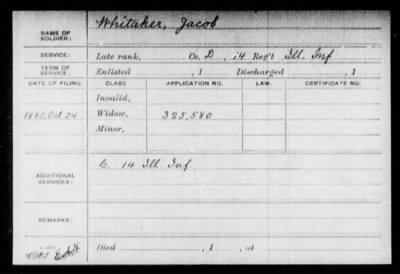 NAME OF SOLDIER: Whitaker, Jacob
SERVICE: Late rank, Co. D, 14 Reg't Ill. Inf
TERM OF SERVICE: Enlisted , 1 Discharged , 1
DATE OF FILING. CLASS APPLICATION NO. LAW. CERTIFICATE NO.
Invalid,
1885, Oct 24 Widow, 325,580
Minor,
ADDITIONAL SERVICES: C. 14 Ill Inf
REMARKS:
Died , 1 , at